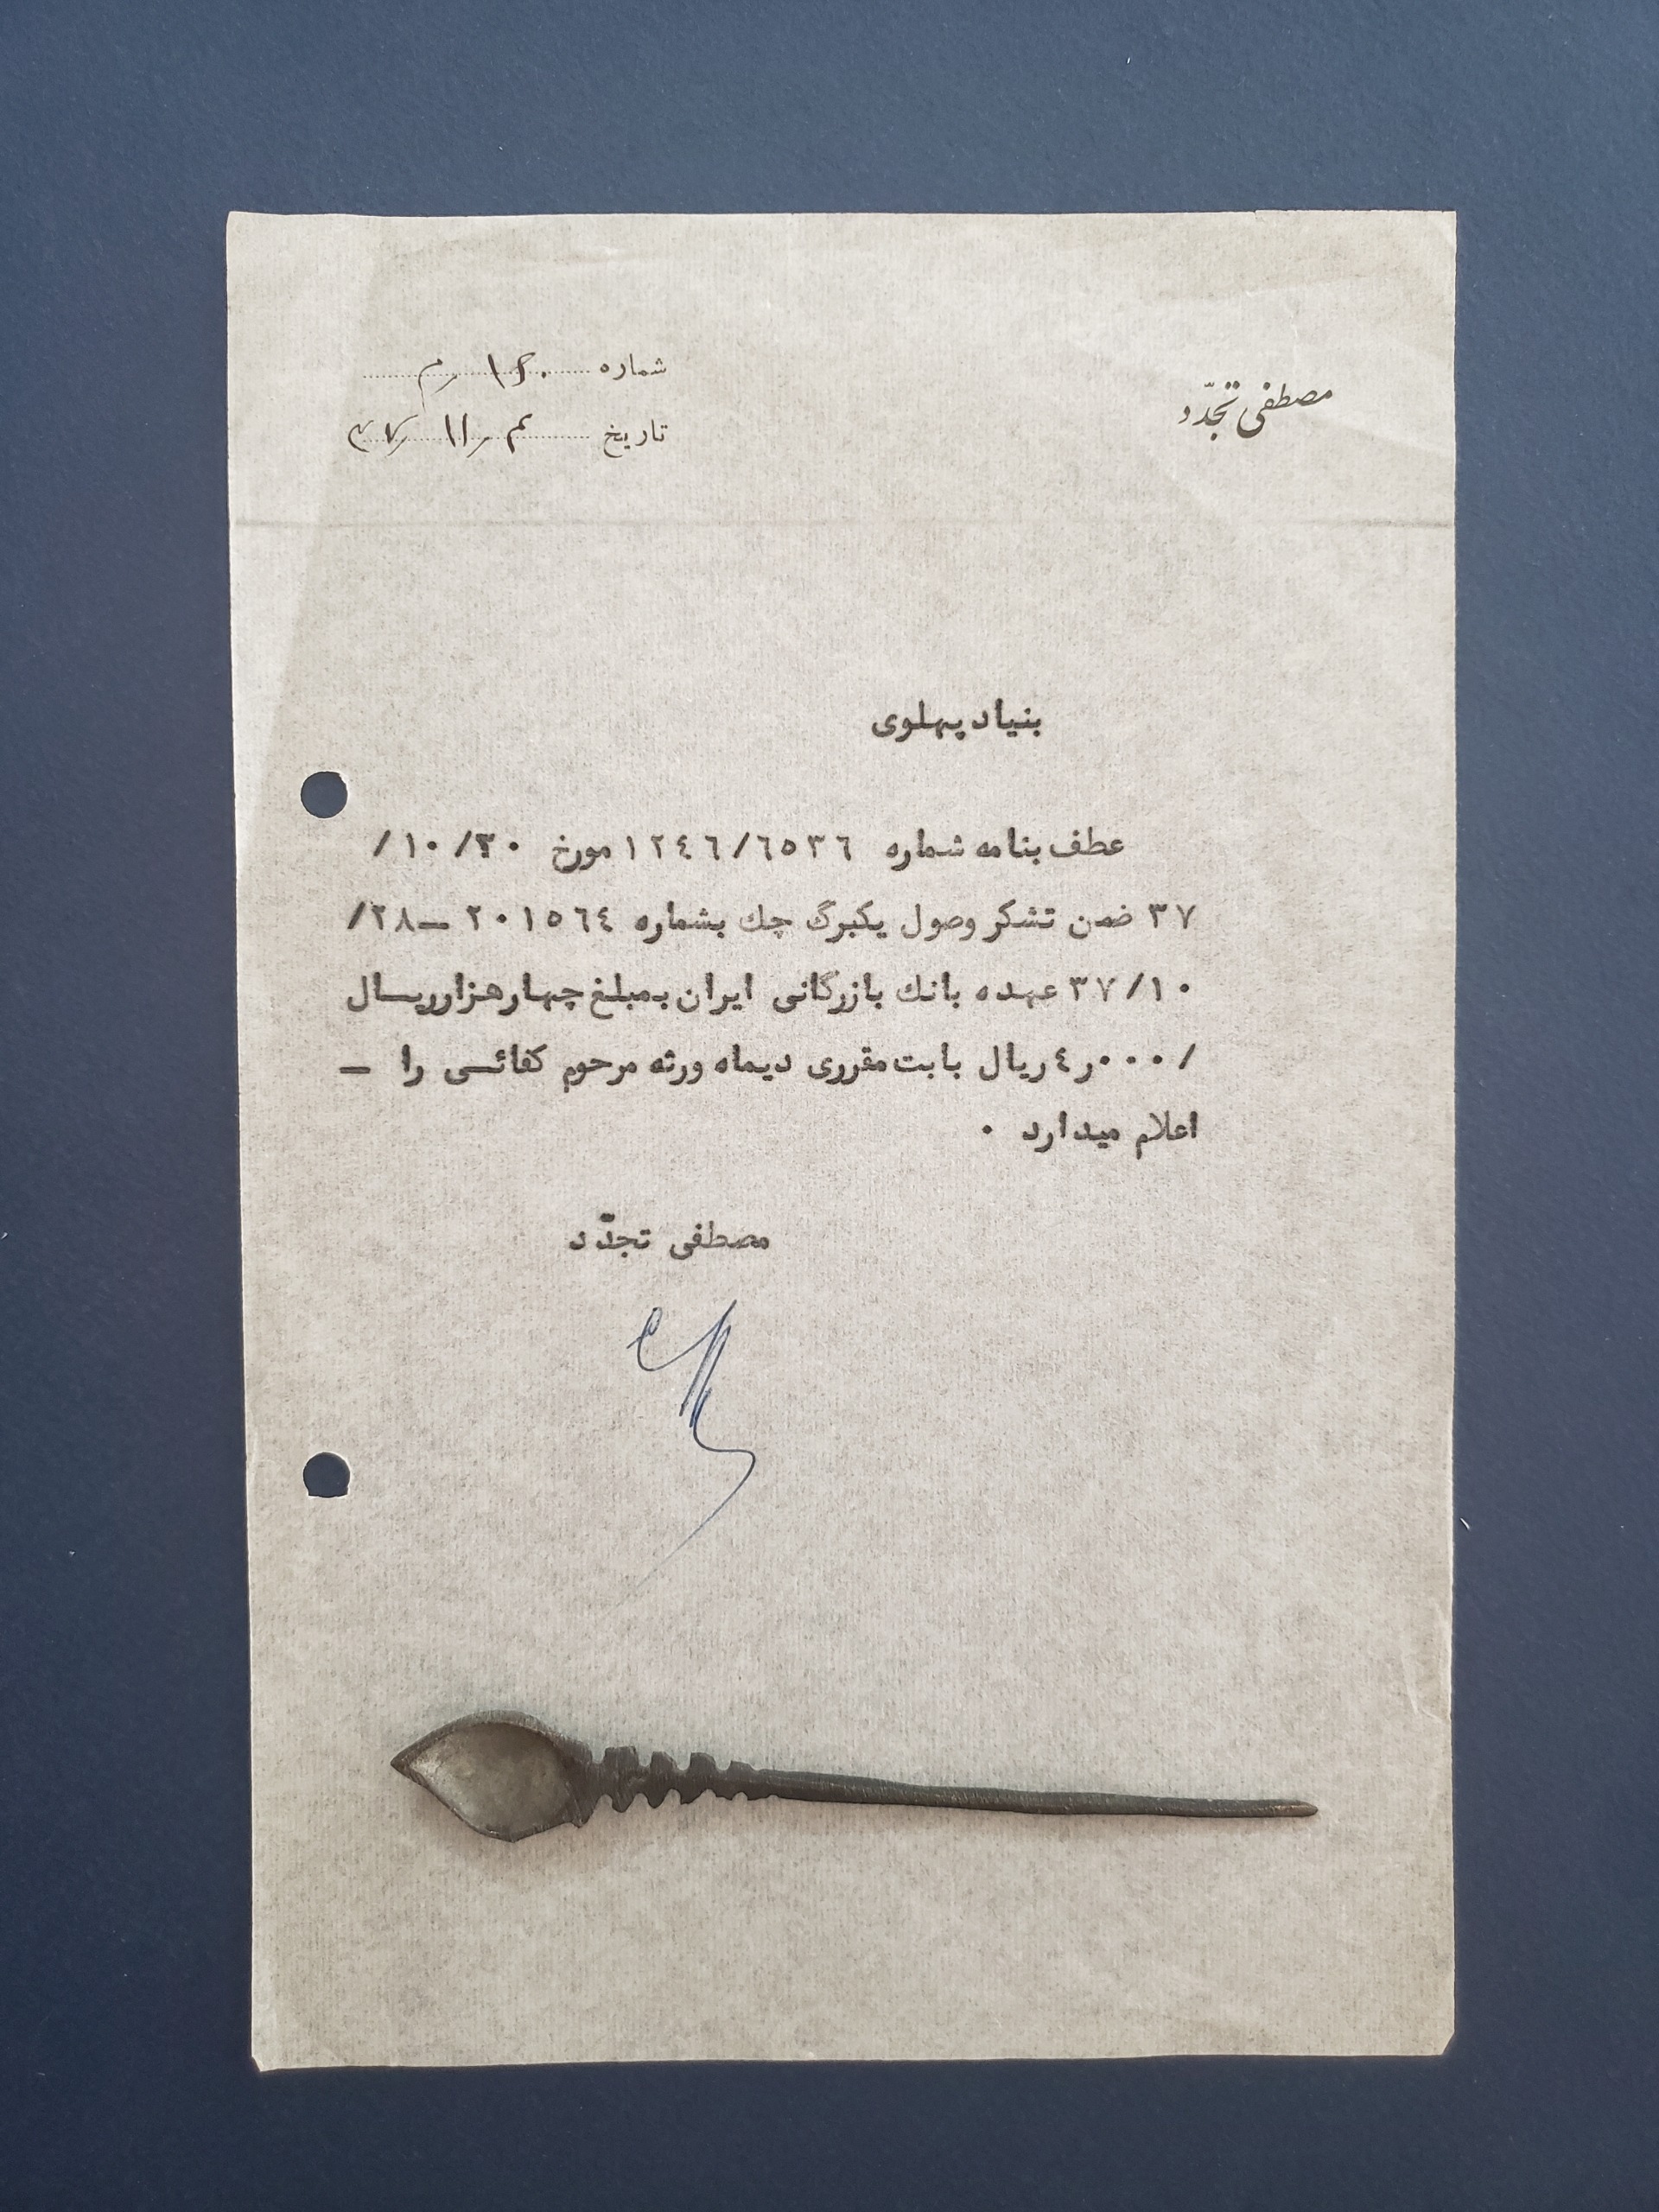 مصطفی تجدّد
شماره ۱۶۰ رم
تاریخ ۴ر۱۱ر۳۷
بنیاد پهلوی
عطف بنامه شماره ۱۲٤٦/٦٥۳٦ مورخ ۳۰/۱۰/
۳۷ ضمن تشکر وصول یکبرگ چك بشماره ۲۰۱٥٦٤ – ۲۸/
۳۷/۱۰ عهده بانك بازرگانی ایران بمبلغ چهار هزار ریسال
/۰۰۰ر٤ ریال بابت مقرری دیماه ورثه مرحوم کفائسی را –
اعلام میدارد ۰
مصطفی تجدّد